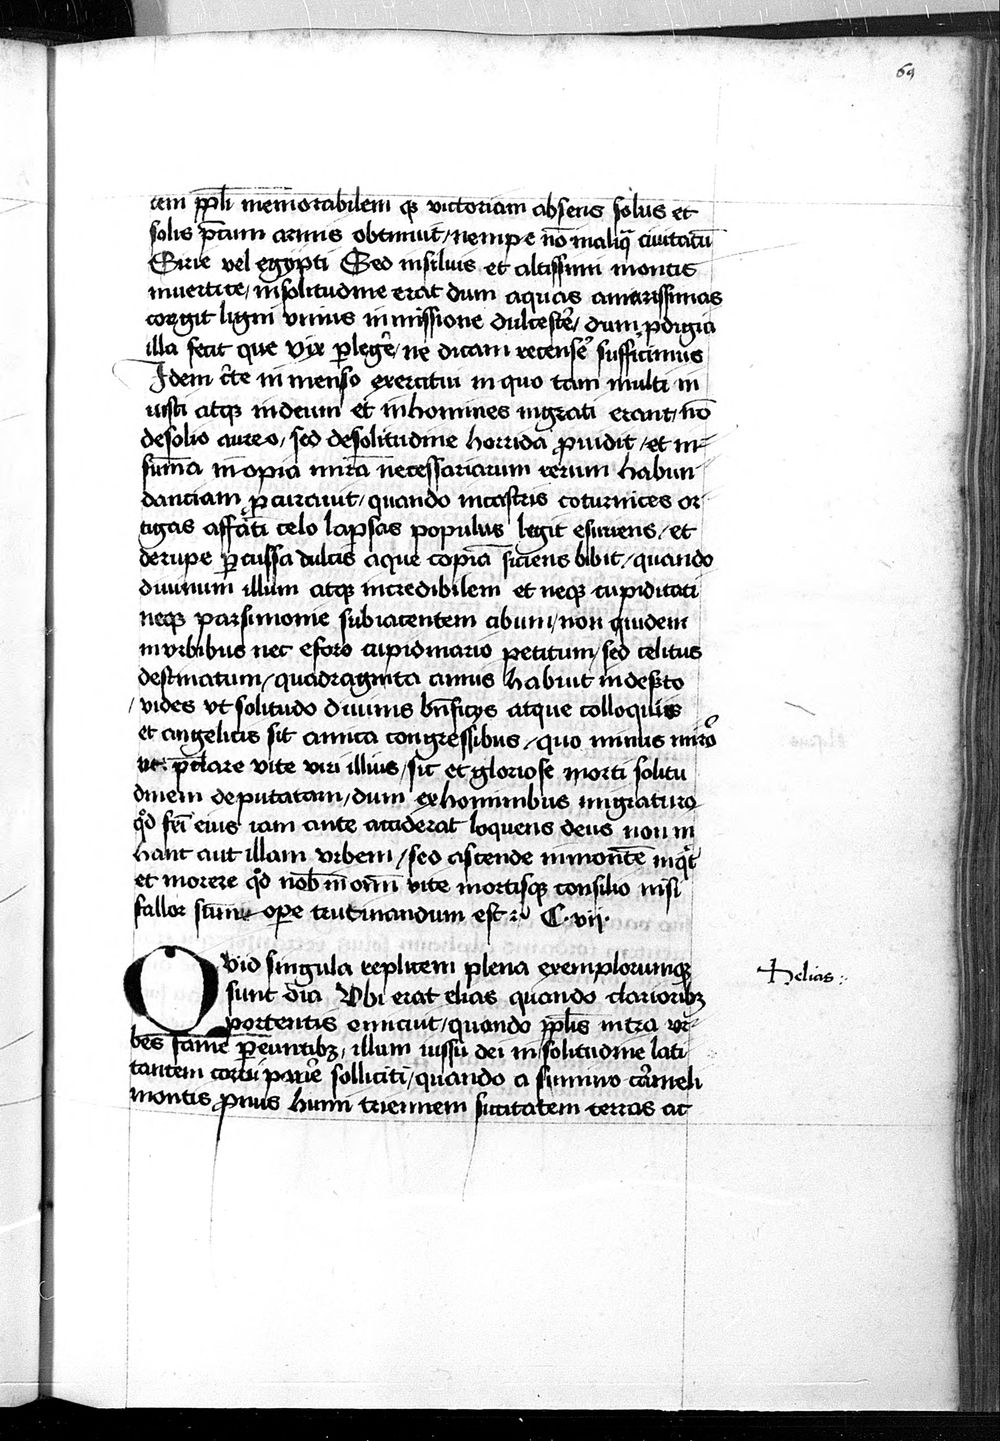 69
tem ppli memorabilem qȝ victoriam absens solus et
solis pcum armis obtinuit / nempe nō in aliq̄ ciuitatū
Sirie vel egypti Sed in siluis et altissimi montis
in vertice / in solitudine erat dum aquas amarissimas
corrigit ligni vnius inmissione dulcescere / dum pdigia
illa fecit que vix plegē / ne dicam recensē sufficimus
Idem c̄te in menso exercitui in quo tam multi in
iusti atqȝ in deum et in homines ingrati erant / nō
de solio aureo / sed de solitudine horrida puidit / et in
summa in opia mirā necessariarum rerum habun
dantiam pcurauit / quando in castris coturnices or
tigas affati celo lapsas populus legit esuriens / et
de rupe pcussa dulcis aque copiā siciens bibit / quando
diuinum illum atqȝ incredibilem et neqȝ cupiditati
neqȝ parsimonie subiacentem cibum / non quidem
in vrbibus nec e foro cupidinario petitum / sed celitus
destinatum / quadraginta annis habuit in deserto
/ vides vt solitudo diuinis bn̄ficijs atque colloquiis
et angelicis sit amica congressibus / quo minus miror
pclare vite viri illius / sic et gloriose morti solitu
dinem deputatam / dum ex hominibus migraturo
qd frī eius iam ante acciderat loquens deus non in
hanc aut illam vrbem / sed ascende in montē inqt
et morere qd nob in om̄i vite mortisqȝ consilio nisi
fallor sum̄e ope trutinandum est C. vij.
Quid singula replicem plena exemplorumqȝ
sunt oīa Vbi erat elias quando clarioribȝ
portentis emicuit / quando pplis intra vr-
bes fame peuntibȝ, illum iussu dei in solitudine lati
tantem corui pauīe solliciti / quando a summo carmeli
montis pnus humi triennem siccitatem terras ac
Helias :.